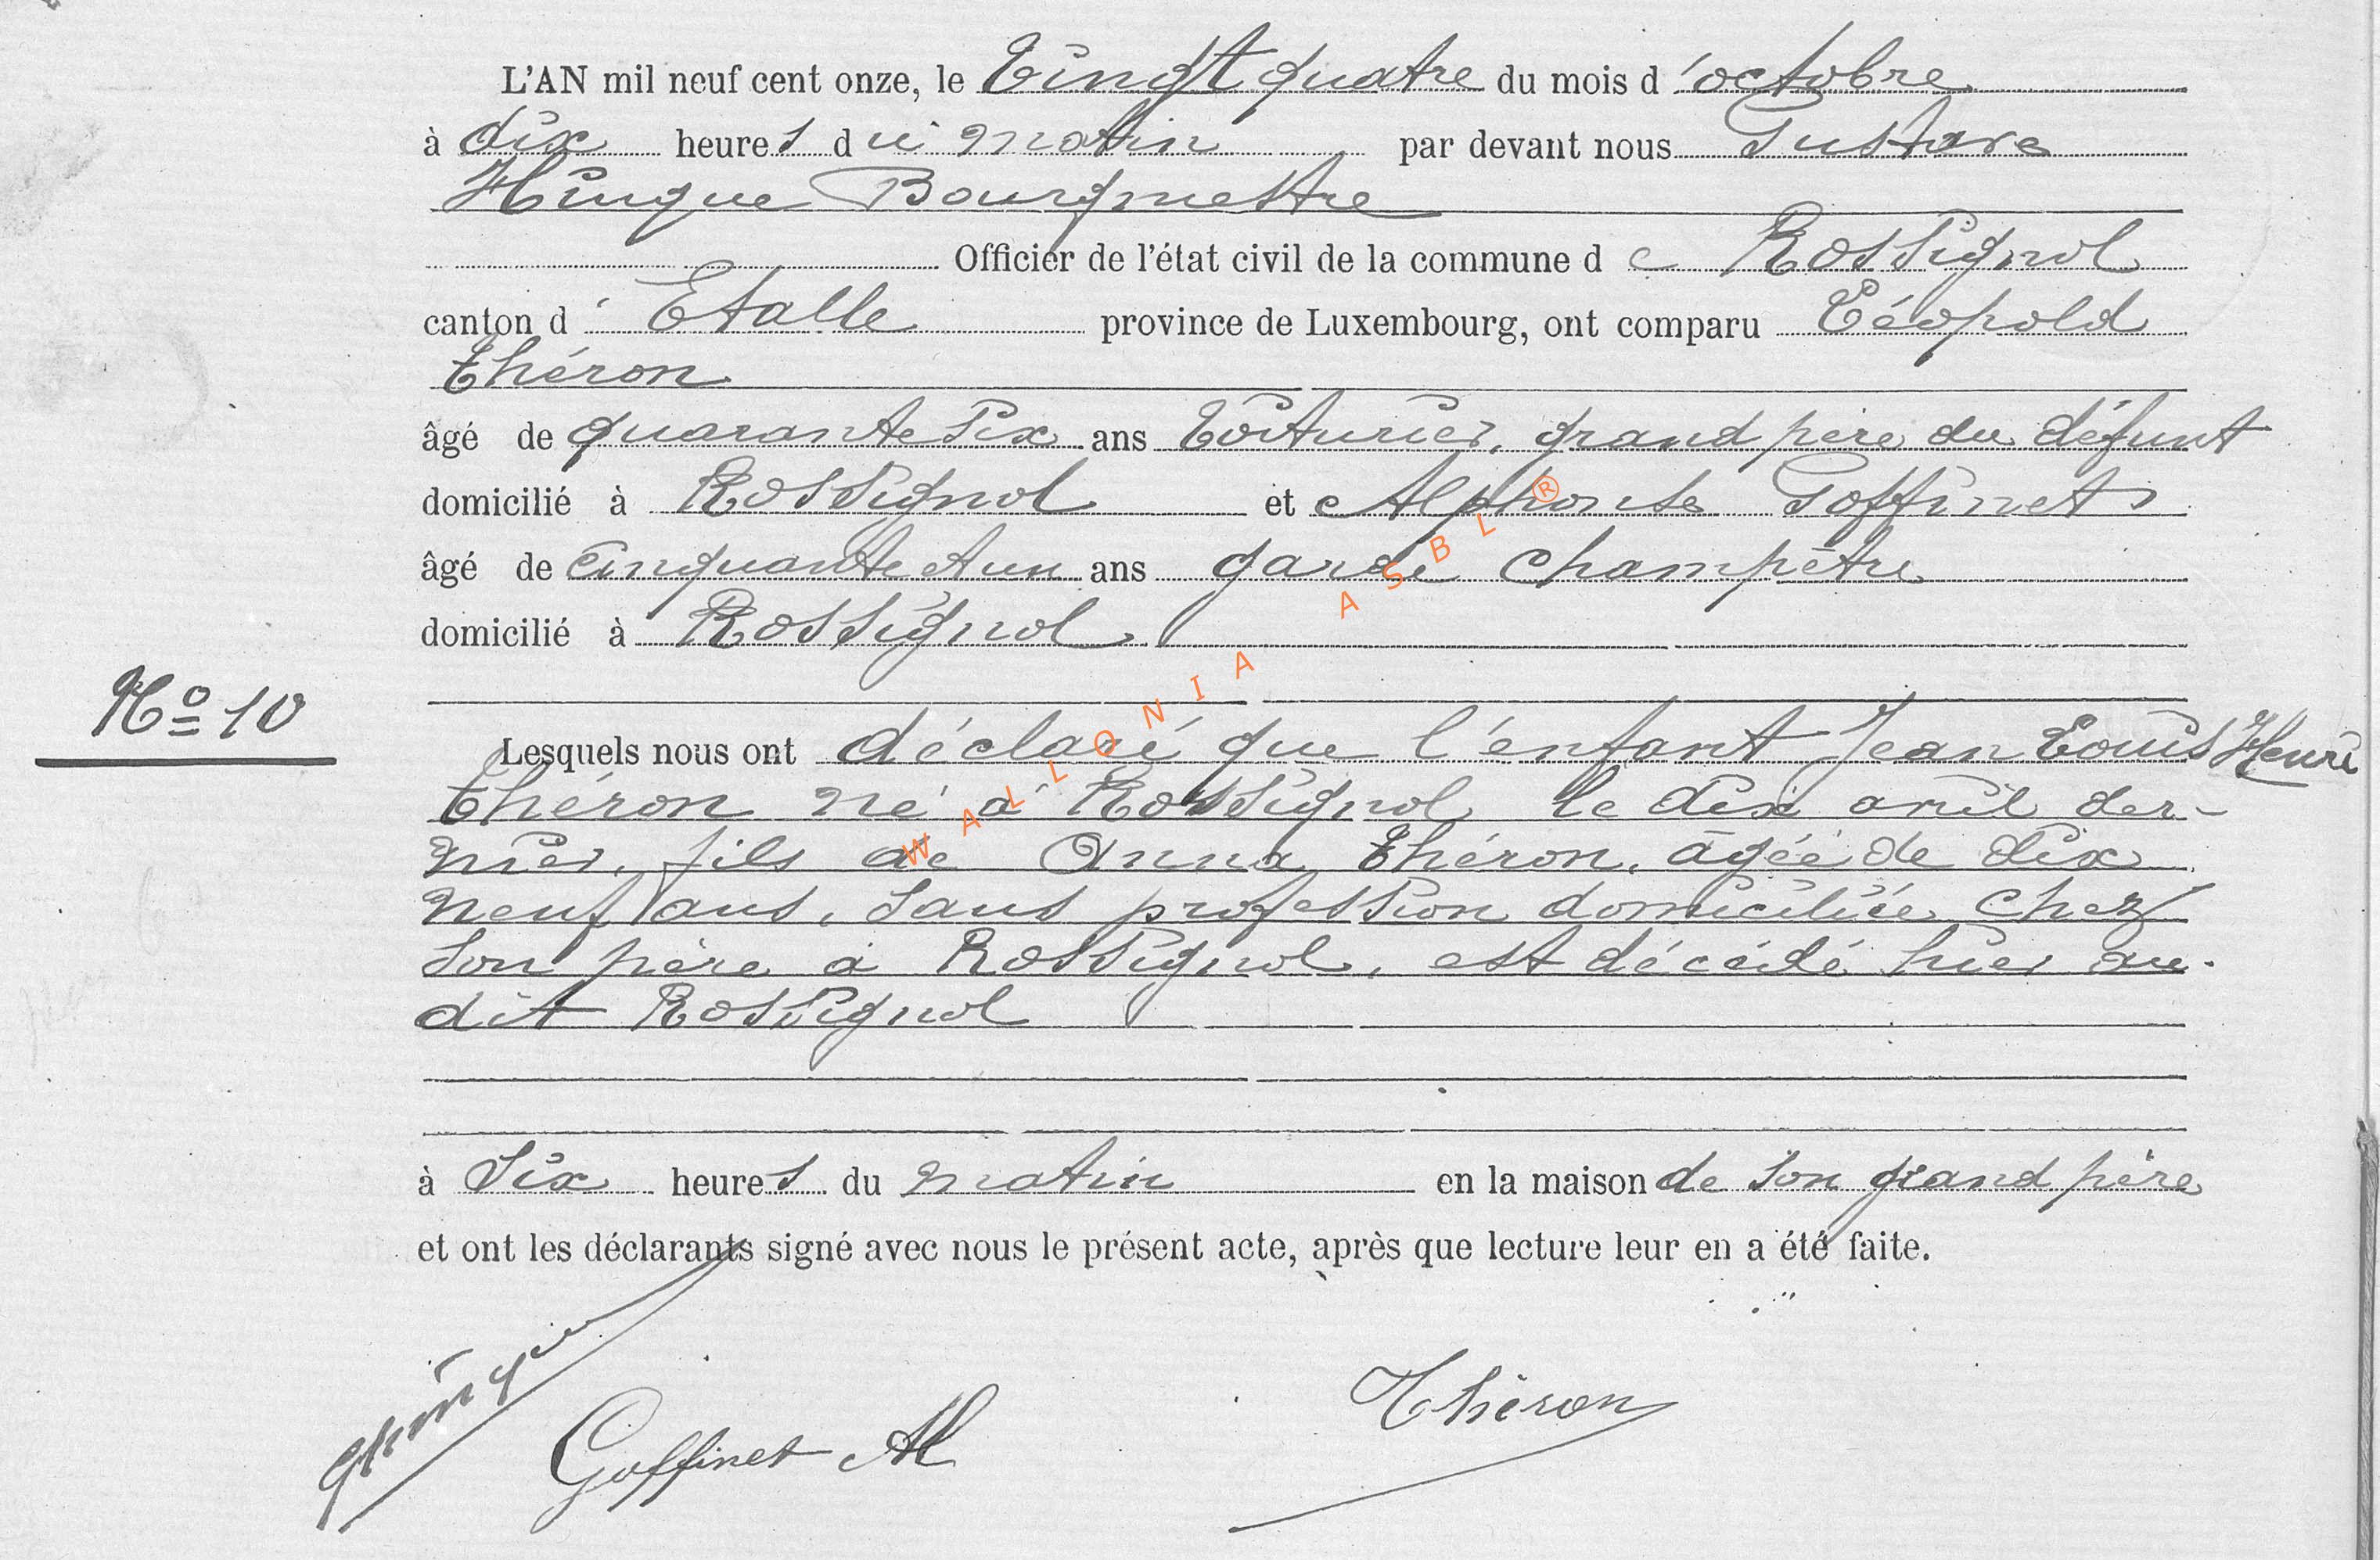 L'AN mil neuf cent onze, le Vingt quatre du mois d'octobre
à dix heures du matin par devant nous Gustave
Hinque Bourgmestre
Officier de l'état civil de la commune de Rossignol
canton d'Etalle province de Luxembourg, ont comparu Léopold
Théron
âgé de quarante six ans Voiturier, grand père du défunt
domicilié à Rossignol et Alphonse Goffinet
âgé de cinquante et un ans garde champêtre
domicilié à Rossignol
Nº 10
Lesquels nous ont déclaré que l'enfant Jean Louis Henri
Théron né à Rossignol le dix avril der-
nier, fils de Anna Théron, âgée de dix
neuf ans, sans profession domiciliée chez
son père à Rossignol, est décédé hier au-
dit Rossignol
à six heures du matin en la maison de son grand père
et ont les déclarants signé avec nous le présent acte, après que lecture leur en a été faite.
GHinque
Goffinet Al
Théron
WALLONIA ASBL ®